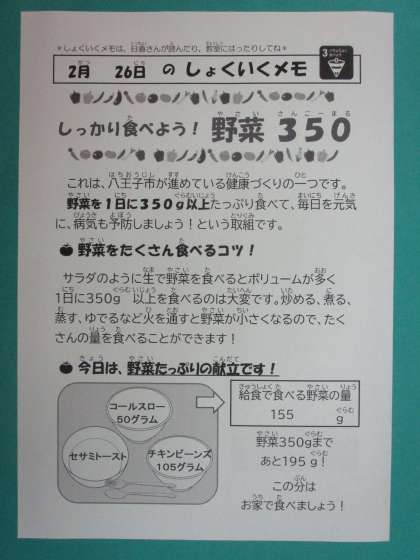 *しょくいくメモは、日直さんが読んだり、教室にはったりしてね*
2月 26日 の しょくいくメモ
しっかり食べよう! 野菜 350
これは、八王子市が進めている健康づくりの一つです。
野菜を1日に350g以上たっぷり食べて、毎日を元気
に、病気も予防しましょう!という取組です。
野菜をたくさん食べるコツ!
サラダのように生で野菜を食べるとボリュームが多く
1日に350g 以上を食べるのは大変です。炒める、煮る、
蒸す、ゆでるなど火を通すと野菜が小さくなるので、たく
さんの量を食べることができます!
今日は、野菜たっぷりの献立です!
コールスロー
50グラム
セサミトースト
チキンビーンズ
105グラム
給食で食べる野菜の量
155 g
野菜350gまで
あと195g!
この分は
お家で食べましょう!